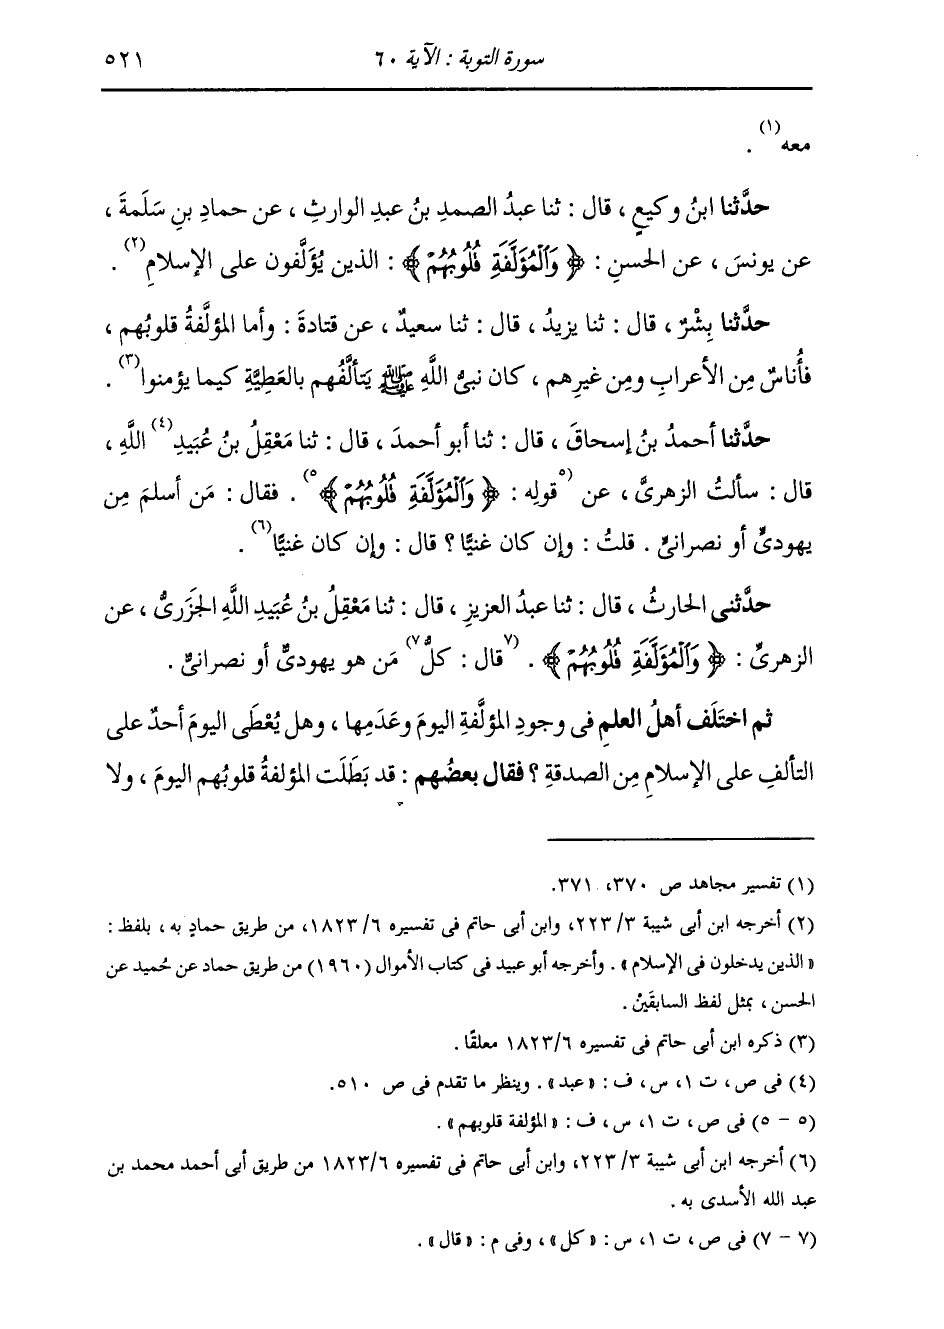 سورة التوبة : الآية ٦٠ ٥٢١
معه(١) .
حدَّثنا ابنُ وكيعٍ ، قال : ثنا عبدُ الصمدِ بنُ عبدِ الوارثِ ، عن حمادِ بنِ سَلَمةَ ،
عن يونسَ ، عن الحسنِ : ﴿ وَٱلْمُؤَلَّفَةِ قُلُوبُهُمْ ﴾ : الذين يُؤَلَّفون على الإسلامِ(٢) .
حدَّثنا بِشْرٌ ، قال : ثنا يزيدُ ، قال : ثنا سعيدٌ ، عن قتادةَ : وأما المؤلَّفةُ قلوبُهم ،
فأُناسٌ مِن الأعرابِ ومِن غيرِهم ، كان نبىُّ اللَّهِ ﷺ يَتألَّفُهم بالعَطِيَّةِ كيما يؤمنوا(٣) .
حدَّثنا أحمدُ بنُ إسحاقَ ، قال : ثنا أبو أحمدَ ، قال : ثنا مَعْقِلُ بنُ عُبَيدِ(٤) اللَّهِ ،
قال : سألتُ الزهرىَّ ، عن (٥قولِه : ﴿ وَٱلْمُؤَلَّفَةِ قُلُوبُهُمْ ﴾٥) . فقال : مَن أسلمَ مِن
يهودىٍّ أو نصرانىٍّ . قلتُ : وإن كان غنيًّا ؟ قال : وإن كان غنيًّا(٦) .
حدَّثنى الحارثُ ، قال : ثنا عبدُ العزيزِ ، قال : ثنا مَعْقِلُ بنُ عُبَيدِ اللَّهِ الجَزَرىُّ ، عن
الزهرىِّ : ﴿ وَٱلْمُؤَلَّفَةِ قُلُوبُهُمْ ﴾ . (٧قال : كلُّ٧) مَن هو يهودىٌّ أو نصرانىٌّ .
ثم اختَلَف أهلُ العلمِ فى وجودِ المؤلَّفةِ اليومَ وعَدَمِها ، وهل يُعْطَى اليومَ أحدٌ على
التألفِ على الإسلامِ مِن الصدقةِ ؟ فقال بعضُهم : قد بَطَلَت المؤلفةُ قلوبُهم اليومَ ، ولا
(١) تفسير مجاهد ص ٣٧٠، ٣٧١.
(٢) أخرجه ابن أبى شيبة ٣/ ٢٢٣، وابن أبى حاتم فى تفسيره ٦/ ١٨٢٣، من طريق حمادٍ به ، بلفظ :
«الذين يدخلون فى الإسلام» . وأخرجه أبو عبيد فى كتاب الأموال (١٩٦٠) من طريق حماد عن حُميد عن
الحسن ، بمثل لفظ السابقَينْ .
(٣) ذكره ابن أبى حاتم فى تفسيره ٦/ ١٨٢٣ معلقًا .
(٤) فى ص ، ت ١، س ، ف : «عبد» . وينظر ما تقدم فى ص ٥١٠.
(٥ - ٥) فى ص ، ت ١، س ، ف : «المؤلفة قلوبهم» .
(٦) أخرجه ابن أبى شيبة ٣/ ٢٢٣، وابن أبى حاتم فى تفسيره ٦/ ١٨٢٣ من طريق أبى أحمد محمد بن
عبد الله الأسدى به .
(٧ - ٧) فى ص ، ت ١، س : «كل» ، وفى م : «قال» .